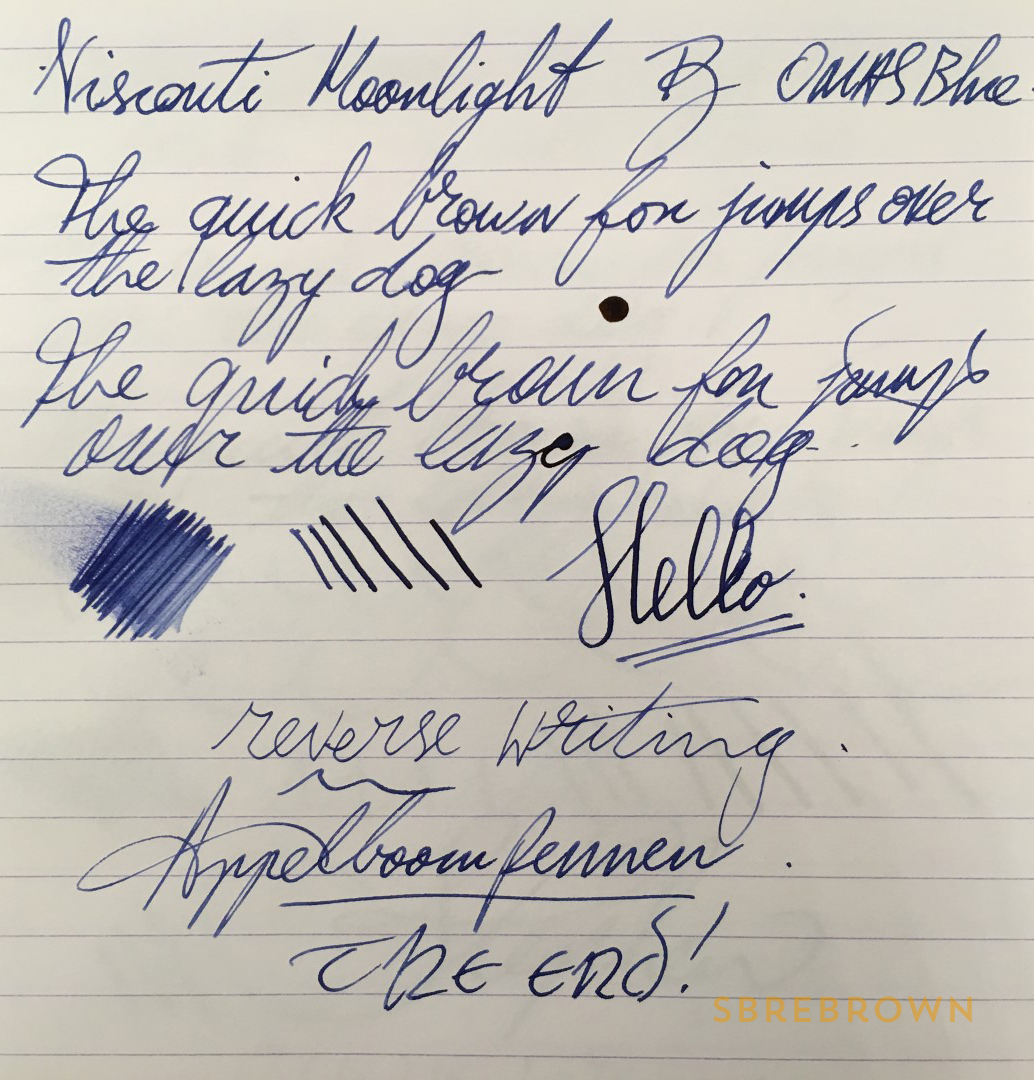 Visconti Moonlight B OMAS Blue.
The quick brown fox jumps over
the lazy dog
The quick brown fox jumps
over the lazy dog.
Hello.
reverse writing.
Appelboom Pennen.
THE END!
SBREBROWN